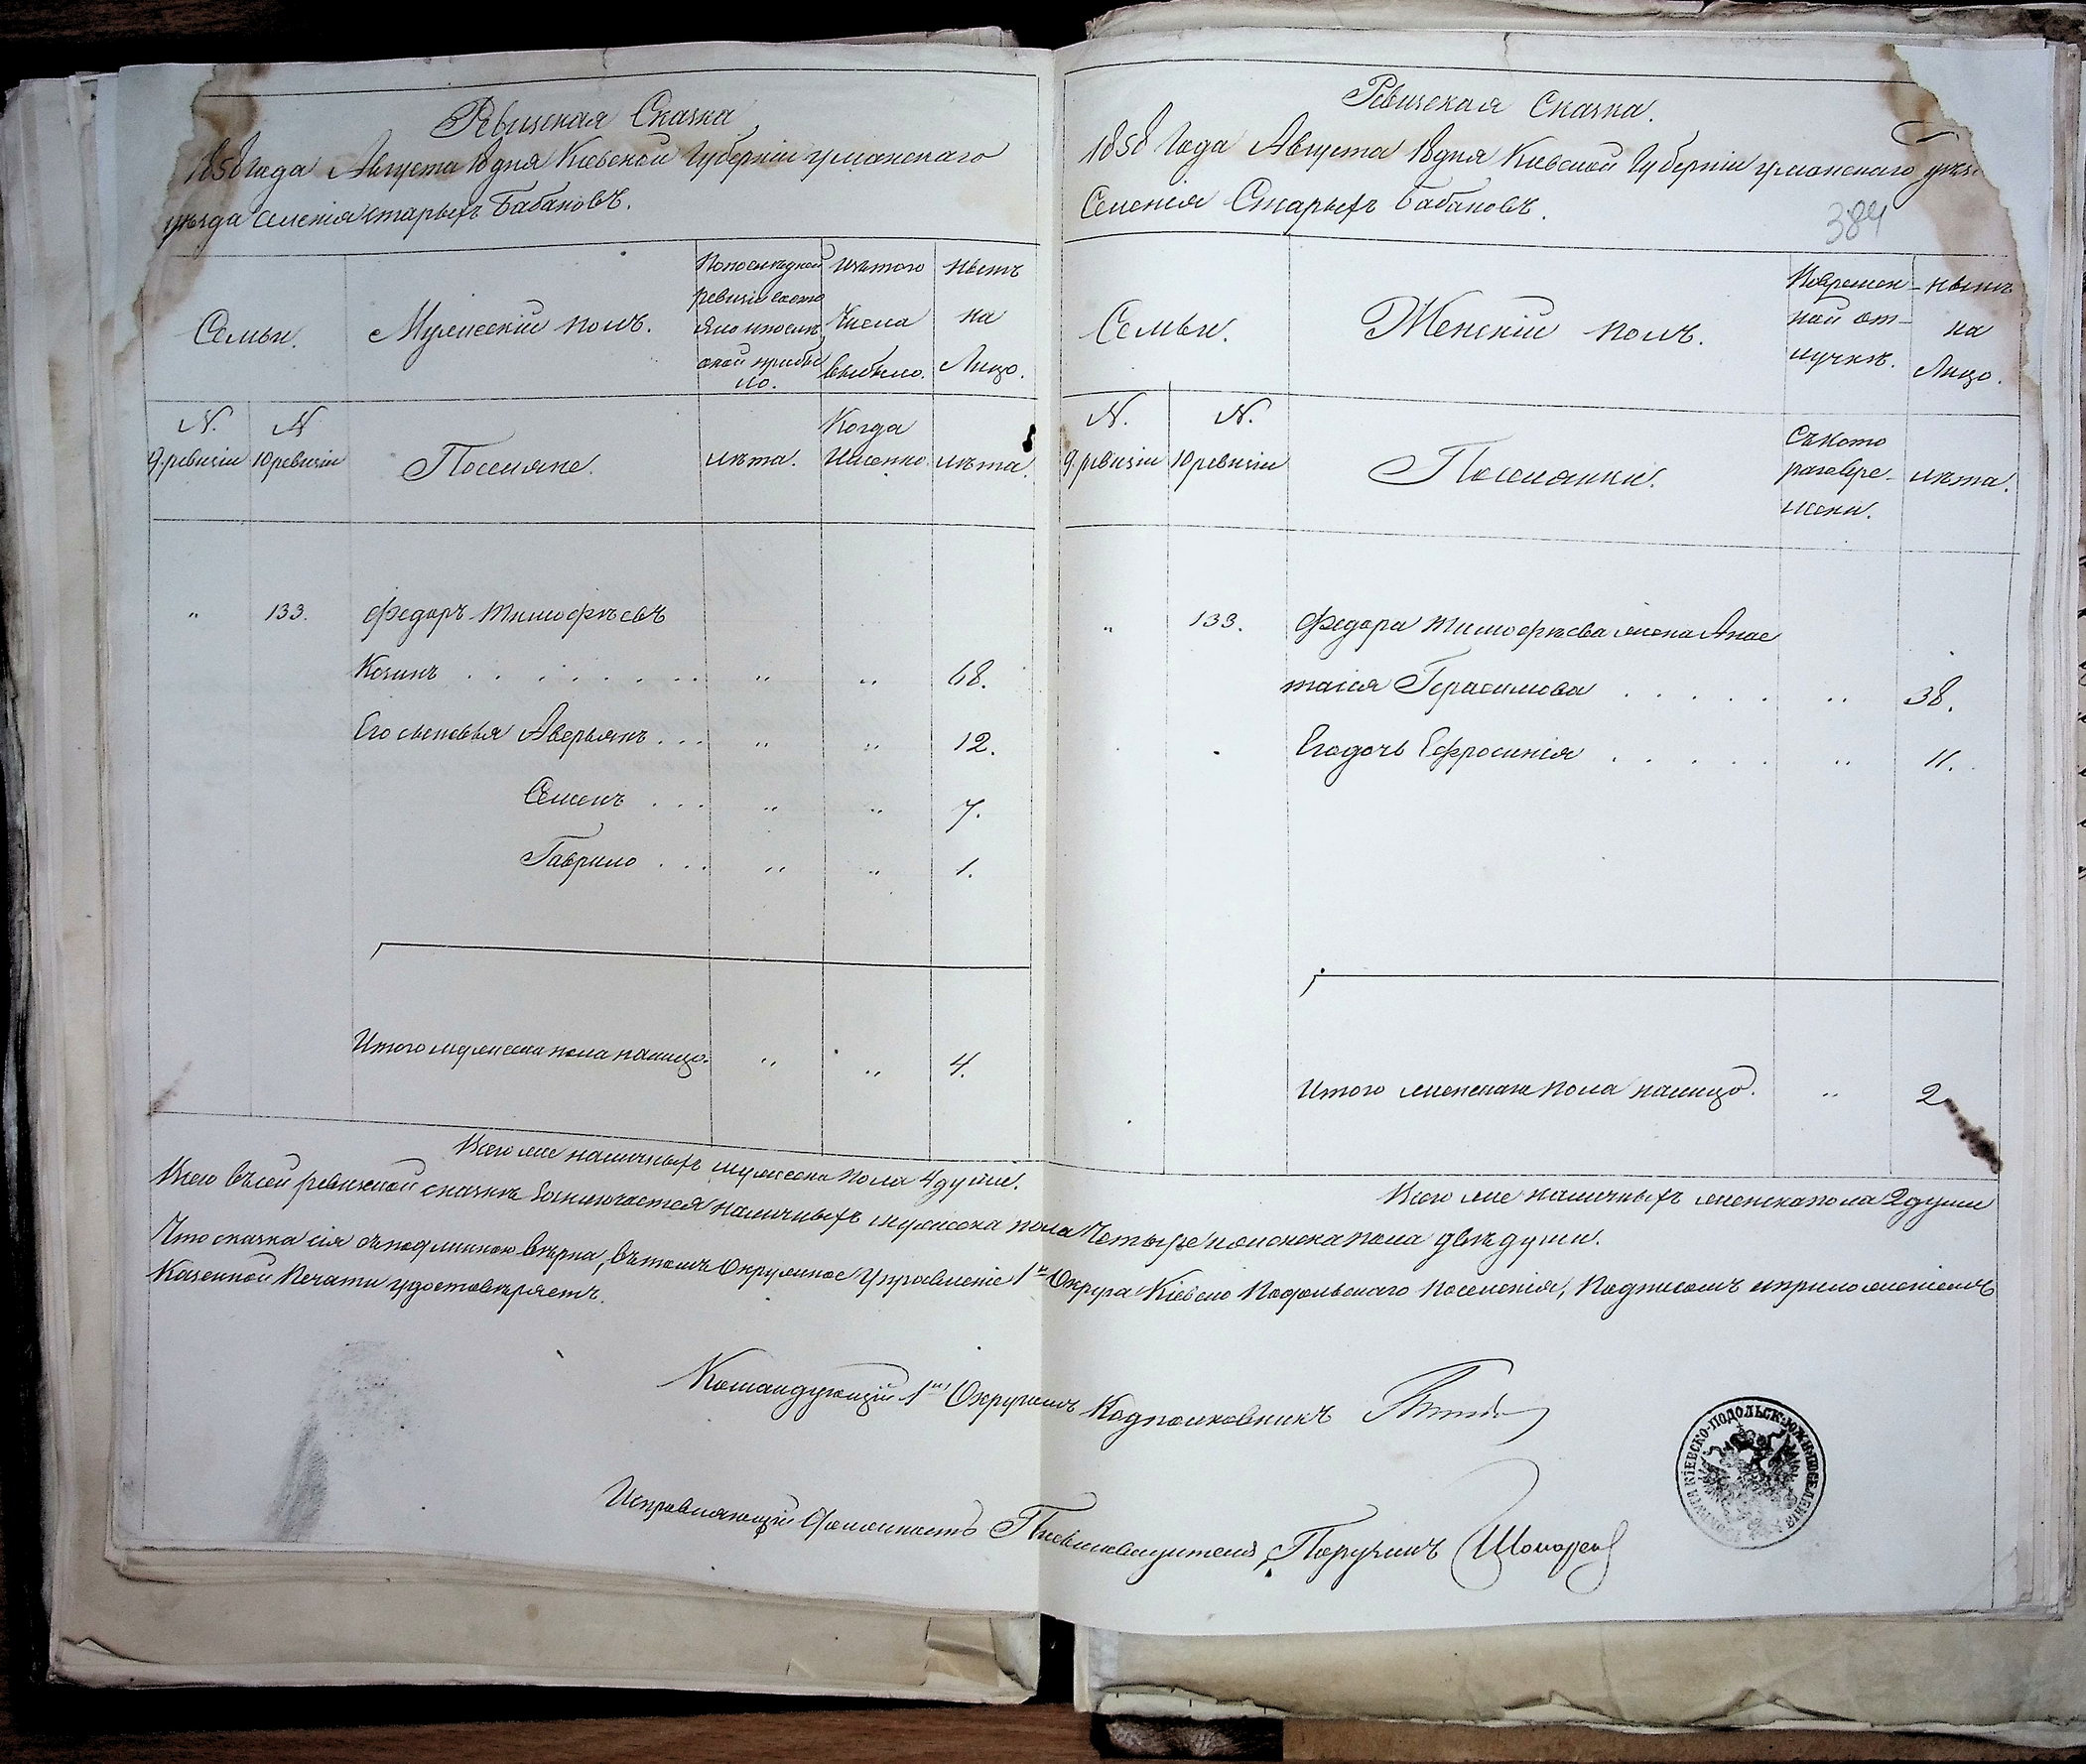 Ревизская Сказка
1858 года Августа 18 дня Киевской Губернии Уманскаго
уѣзда селенія Старыхъ Бабановъ.
Семьи.
Мужескій полъ.
По последней
ревизіи состо
яло и после
оной прибы
ло.
Изъ того
Числа
выбыло.
Нынѣ
на
Лицо.
N. 9 ревизіи
N 10 ревизіи
Поселяне.
лѣта.
Когда
Именно
лѣта.
" 133. Федоръ Тимофѣевъ
Козинъ . . . . . . . " " 68.
Его сыновья Аверьянъ . . . " " 12.
Семенъ . . . " " 7.
Гаврило . . . " " 1.
Итого мужеска пола налицо. " " 4.
Всего же наличныхъ мужеска пола 4 души.
Ревизская Сказка.
1858 Года Августа 18 дня Киевской Губерніи Уманскаго уѣз
Селенія Старыхъ Бабановъ.
384
Семьи.
Женскій полъ.
Во времен-
ной от-
лучкѣ.
Нынѣ
на
Лицо.
N. 9 ревизіи
N. 10 ревизіи
Поселянки.
Съ кото
раго вре-
мени.
лѣта.
" 133. Федора Тимофѣева жена Анас
тасія Герасимова . . . . . " 38.
Его дочь Ефросинія . . . . . " 11.
Итого женскаго пола налицо. " 2
Всего же наличныхъ женска пола 2 души
Всего въ сей ревизской сказкѣ заключается наличныхъ мужеска пола Четыре и женска пола двѣ души.
Что сказка сія съ подлинною вѣрна, въ томъ Окружное Управленіе 1го Округа Кіевско Подольскаго Поселенія, Подписомъ и приложеніемъ
Казенной Печати удостовѣряетъ.
Командующій 1мъ Округомъ Подполковникъ
Исправляющій Должность Поручикъ
КІЕВСКО-ПОДОЛЬСК: ЮЖН: ПОСЕЛЕНІЯ